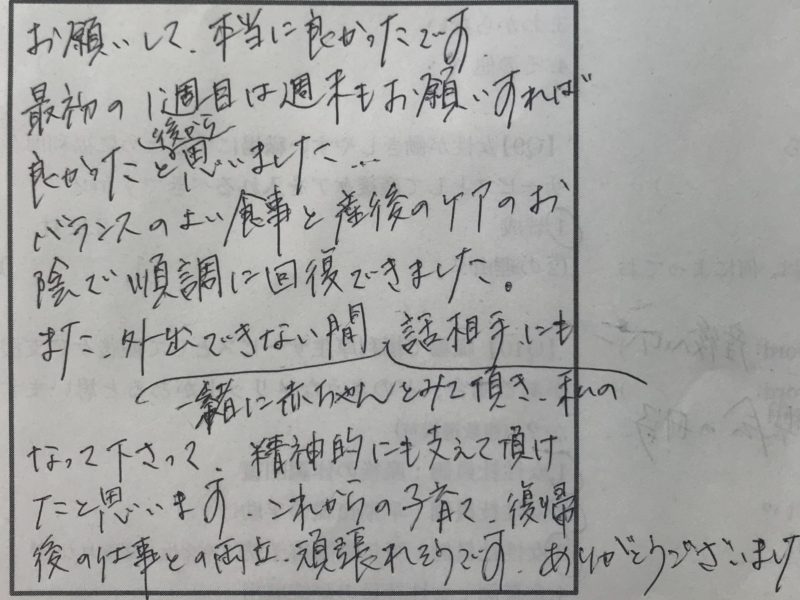 お願いして、本当に良かったです。
最初の1週目は週末もお願いすれば
後から
良かったと思いました…
バランスのよい食事と産後のケアのお
陰で順調に回復できました。
また、外出できない間、話相手にも
一緒に赤ちゃんとみて頂き、私の
なって下さって、精神的にも支えて頂け
たと思います。これからの子育て、復帰
後の仕事との両立、頑張れそうです。ありがとうございました